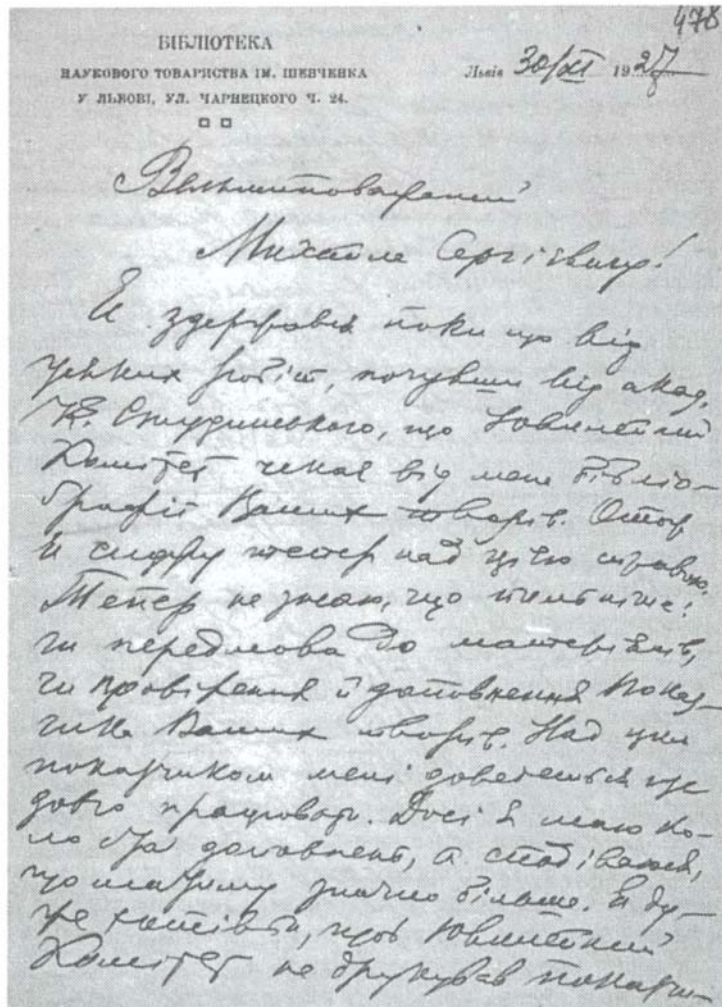 478
БІБЛІОТЕКА
НАУКОВОГО ТОВАРИСТВА ІМ. ШЕВЧЕНКА
У ЛЬВОВІ, УЛ. ЧАРНЕЦКОГО Ч. 24.
Львів 30/XI 1927
Вельмиповажаний
Михайле Сергієвичу!
Я здержався поки що від
усяких робіт, почувши від акад.
К. Студинського, що Ювилейний
Комітет чекає від мене бібліо-
графії Ваших творів. Отож
й сиджу тепер над цією справою.
Тепер не знаю, що пильніше:
чи передмова до матеріялів,
чи провірення й доповнення Показ-
чика Ваших творів. Над цим
показчиком мені доведеться ще
довго працювати. Досі я маю ко-
ло ста доповнень, а сподіваюся,
що матиму значно більше. Я ду-
же хотівби, щоб Ювилейний
Комітет не друкував показчи-